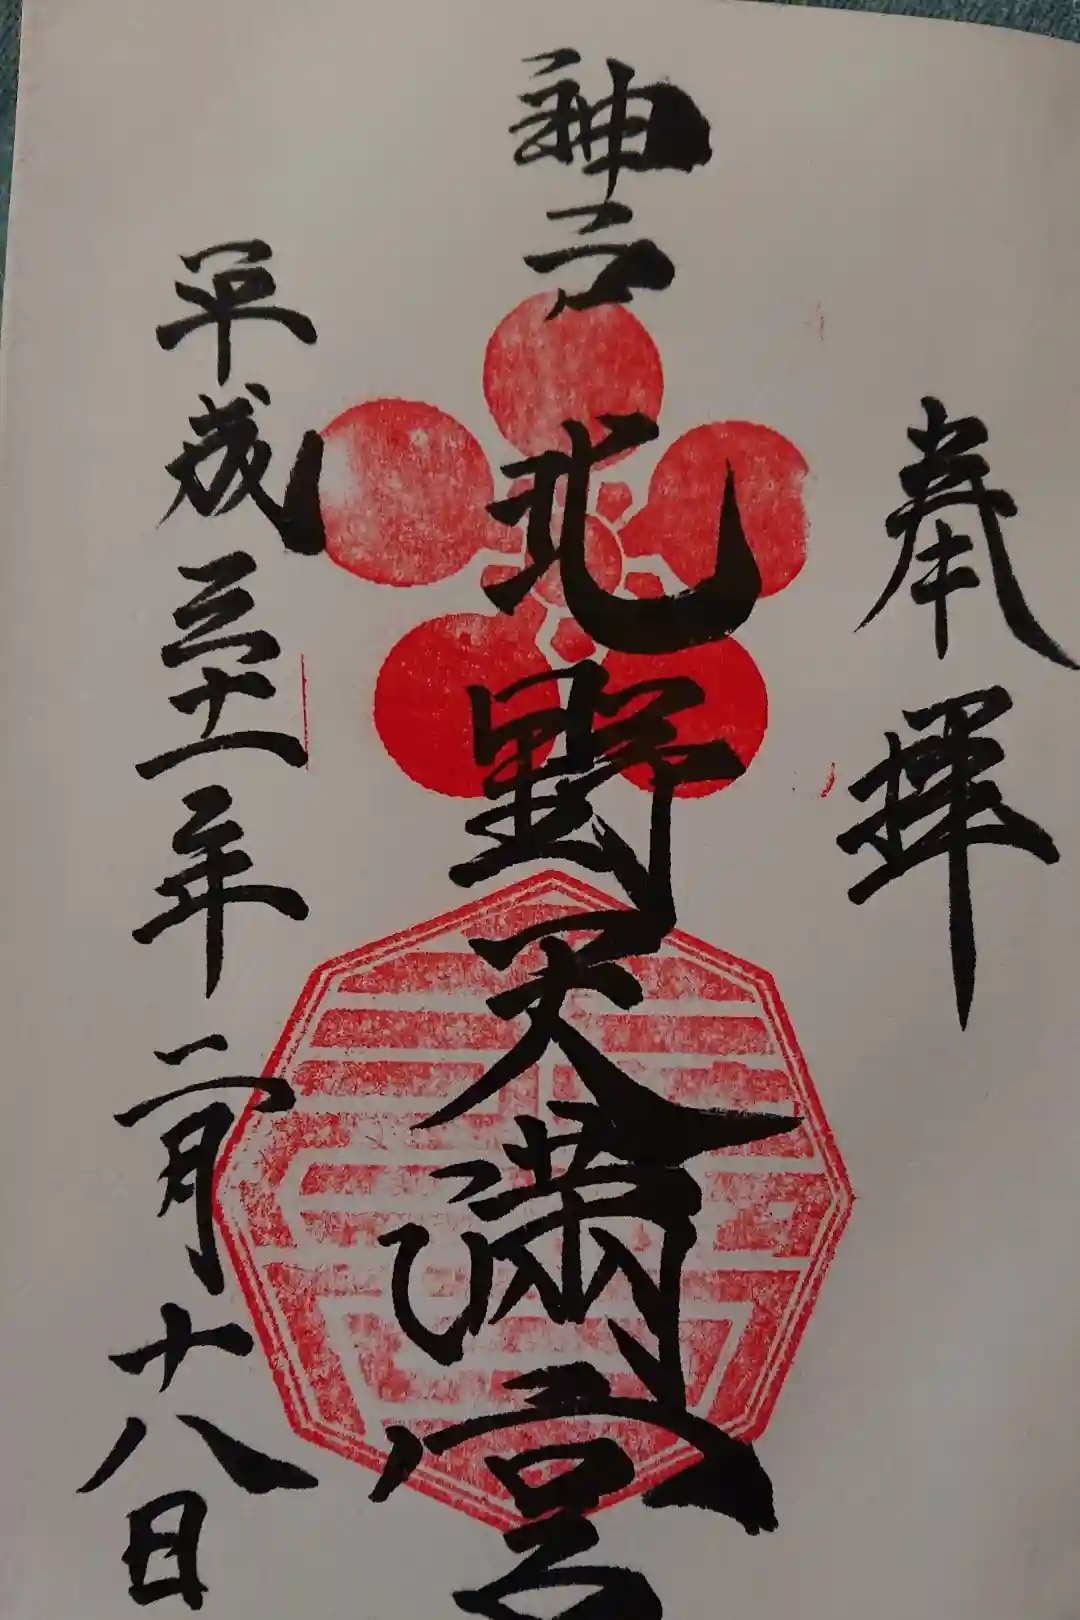 奉拝
神戸
北野天満宮
平成三十一年二月十八日